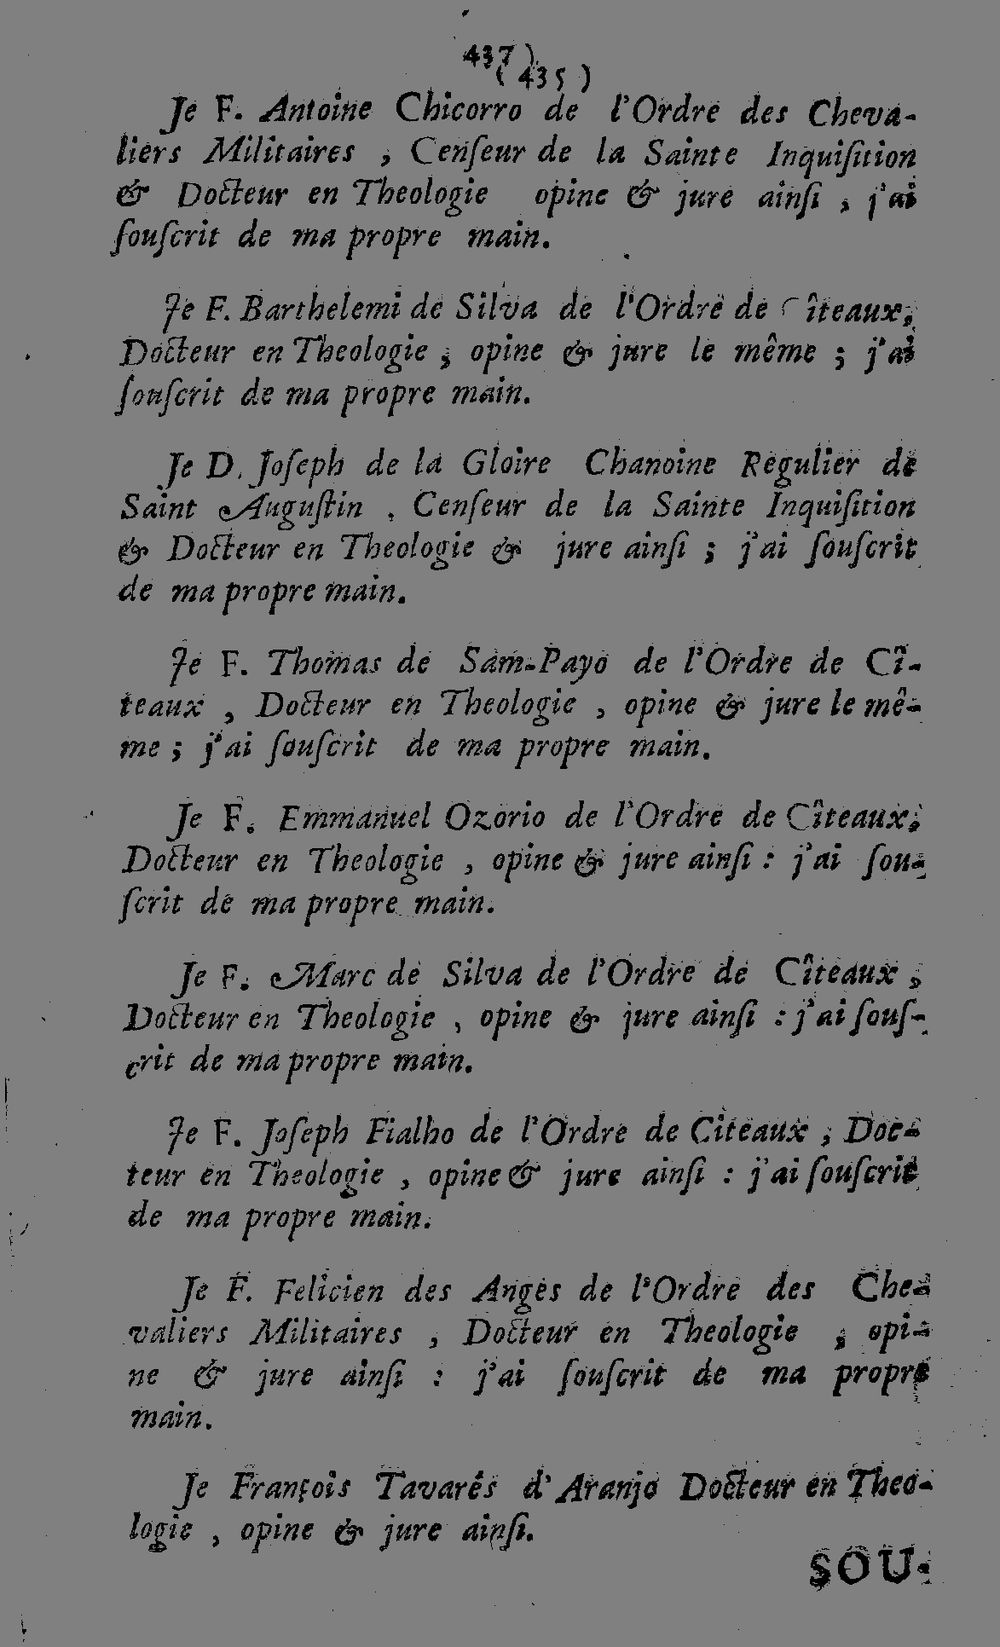 437)
(435)
Je F. Antoine Chicorro de l'Ordre des Cheva-
liers Militaires , Cenſeur de la Sainte Inquiſition
& Docteur en Theologie opine & jure ainſi , j'ai
ſouſcrit de ma propre main.
Je F. Barthelemi de Silva de l'Ordre de Cîteaux,
Docteur en Theologie , opine & jure le même ; j'ai
ſouſcrit de ma propre main.
Je D. Joſeph de la Gloire Chanoine Regulier de
Saint Auguſtin , Cenſeur de la Sainte Inquiſition
& Docteur en Theologie & jure ainſi ; j'ai ſouſcrit
de ma propre main.
Je F. Thomas de Sam-Payo de l'Ordre de Cî-
teaux , Docteur en Theologie , opine & jure le mê-
me ; j'ai ſouſcrit de ma propre main.
Je F. Emmanuel Ozorio de l'Ordre de Cîteaux,
Docteur en Theologie , opine & jure ainſi : j'ai ſou-
ſcrit de ma propre main.
Je F. Marc de Silva de l'Ordre de Cîteaux ,
Docteur en Theologie , opine & jure ainſi : j'ai ſouſ-
crit de ma propre main.
Je F. Joſeph Fialho de l'Ordre de Cîteaux , Doc-
teur en Theologie , opine & jure ainſi : j'ai ſouſcrit
de ma propre main.
Je F. Felicien des Anges de l'Ordre des Che-
valiers Militaires , Docteur en Theologie , opi-
ne & jure ainſi : j'ai ſouſcrit de ma propre
main.
Je François Tavarés d'Aranjo Docteur en Theo-
logie , opine & jure ainſi.
SOU-